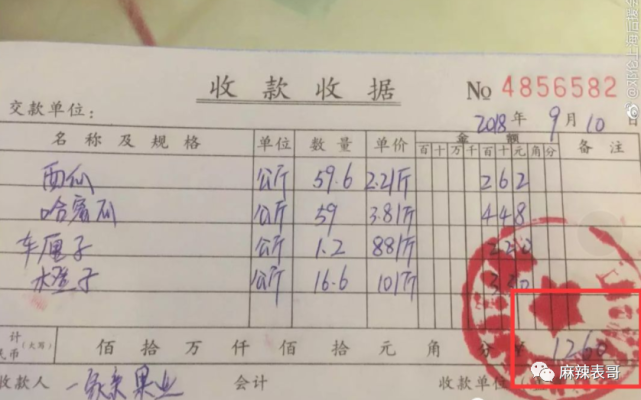 收款收据 No 4856582
交款单位： 2018年9月10日
名称及规格 单位 数量 单价 金额 备注
百十万千百十元角分
西仙 公斤 59.6 2.2/斤 262
哈密瓜 公斤 59 3.8/斤 448
车厘子 公斤 1.2 88/斤
木橙子 公斤 16.6 10/斤
计(大写) 佰拾万仟佰拾元角分 ¥1260
民币
收款人 一家亲果业 会计 收款单位
麻辣表哥